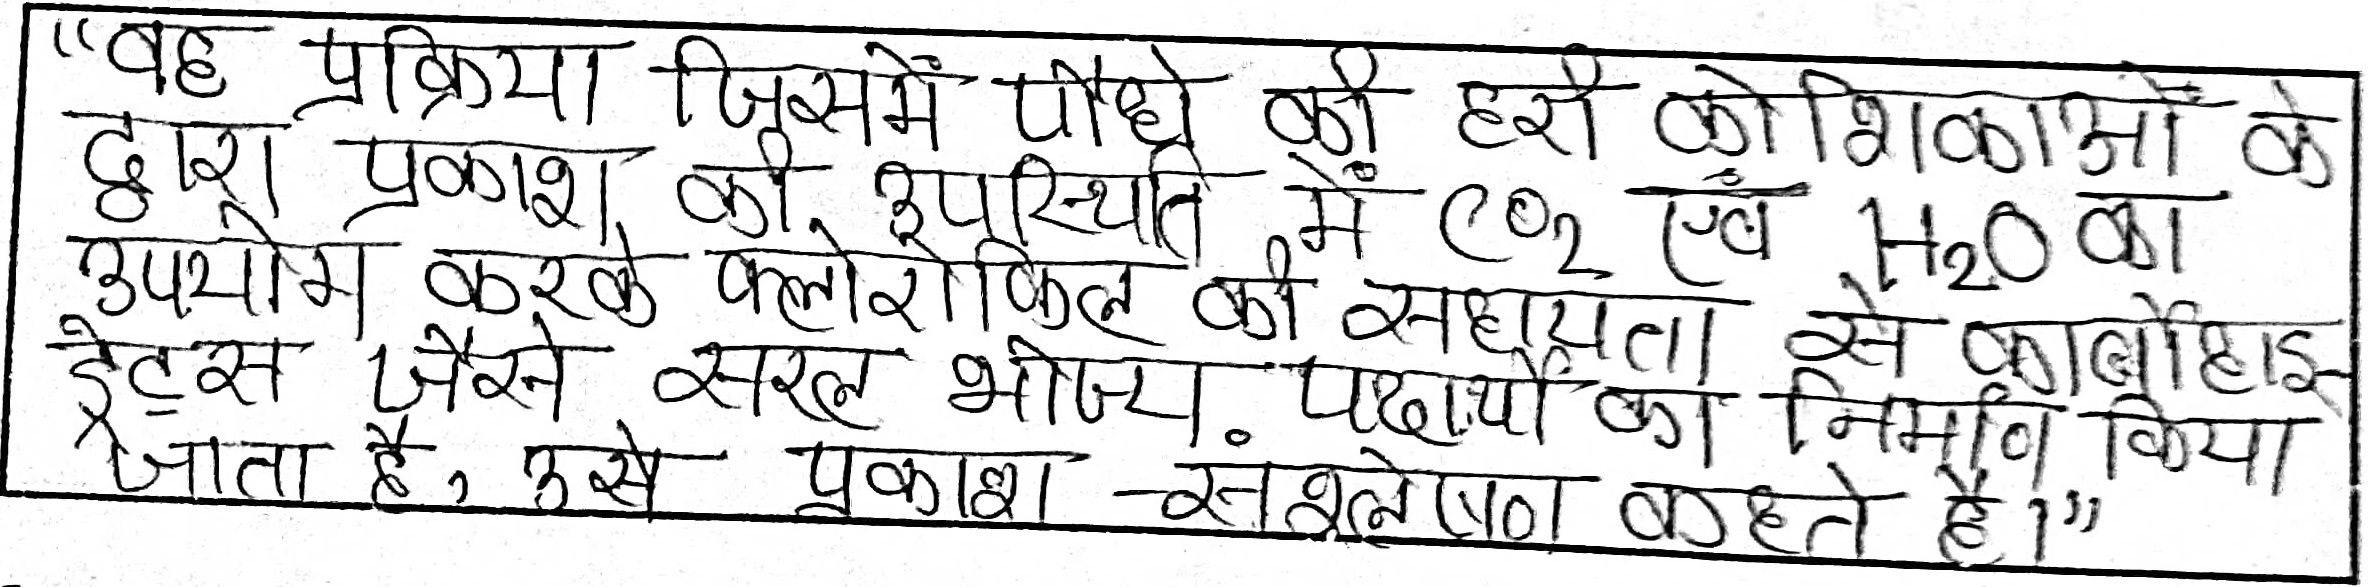 "वह प्रक्रिया जिसमें पौधे की हरी कोशिकाओं के
द्वारा प्रकाश की उपस्थिति में CO2 एवं H2O का
उपयोग करके क्लोरोफिल की सहायता से कार्बोहाइ-
ड्रेट्स जैसे सरल भोज्य पदार्थों का निर्माण किया
जाता है, उसे प्रकाश-संश्लेषण कहते है।"